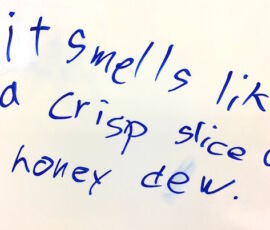 it smells lik
a crisp slice
honey dew.